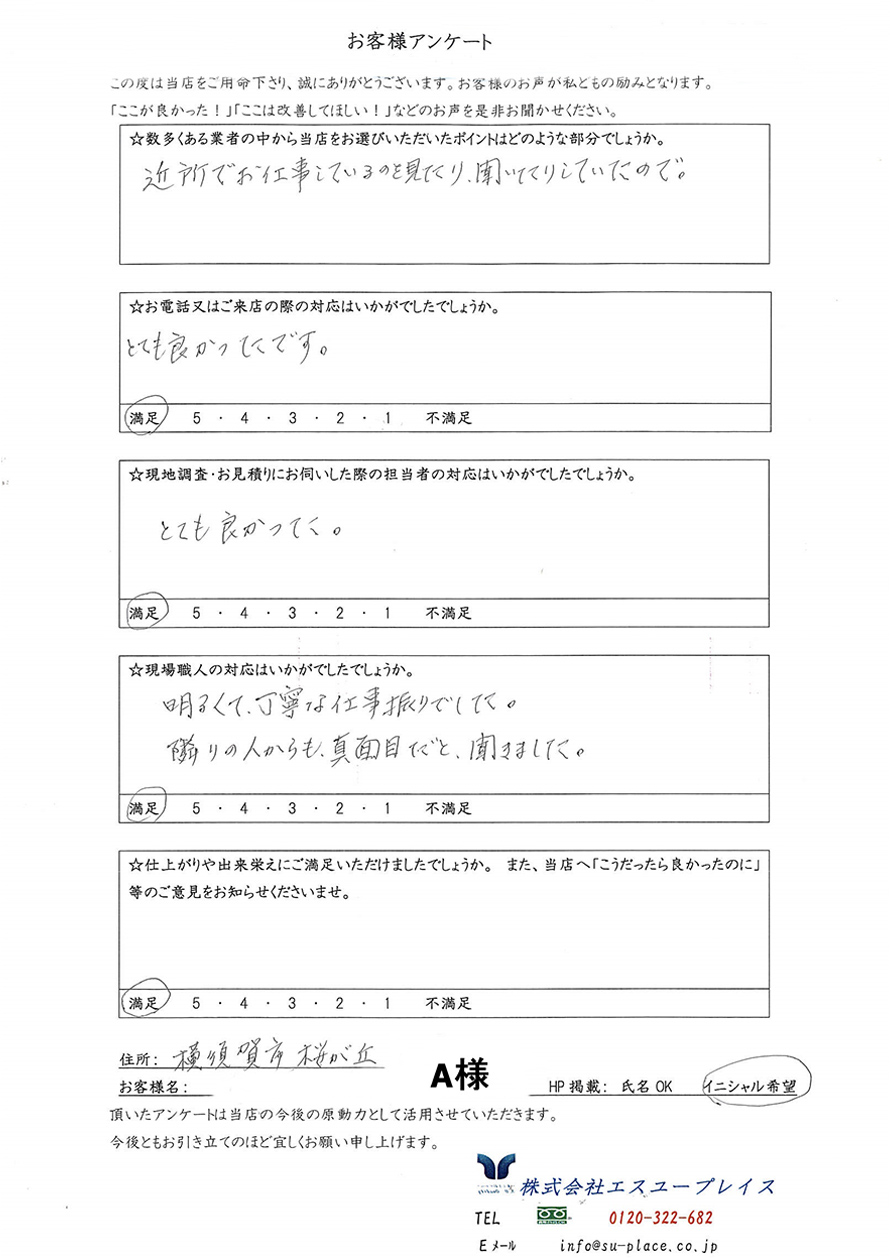 お客様アンケート
この度は当店をご用命下さり、誠にありがとうございます。お客様のお声が私どもの励みとなります。
「ここが良かった！」「ここは改善してほしい！」などのお声を是非お聞かせください。
☆数多くある業者の中から当店をお選びいただいたポイントはどのような部分でしょうか。
近所でお仕事しているのを見たり、聞いたりしていたので。
☆お電話又はご来店の際の対応はいかがでしたでしょうか。
とても良かったです。
満足 5 ・ 4 ・ 3 ・ 2 ・ 1 不満足
☆現地調査・お見積りにお伺いした際の担当者の対応はいかがでしたでしょうか。
とても良かった。
満足 5 ・ 4 ・ 3 ・ 2 ・ 1 不満足
☆現場職人の対応はいかがでしたでしょうか。
明るくて、丁寧な仕事振りでした。
隣りの人からも、真面目だと、聞きました。
満足 5 ・ 4 ・ 3 ・ 2 ・ 1 不満足
☆仕上がりや出来栄えにご満足いただけましたでしょうか。 また、当店へ「こうだったら良かったのに」
等のご意見をお知らせくださいませ。
満足 5 ・ 4 ・ 3 ・ 2 ・ 1 不満足
住所： 横須賀市桜が丘
お客様名： A様 HP掲載： 氏名OK イニシャル希望
頂いたアンケートは当店の今後の原動力として活用させていただきます。
今後ともお引き立てのほど宜しくお願い申し上げます。
株式会社エスユープレイス
TEL 0120-322-682
Eメール info@su-place.co.jp